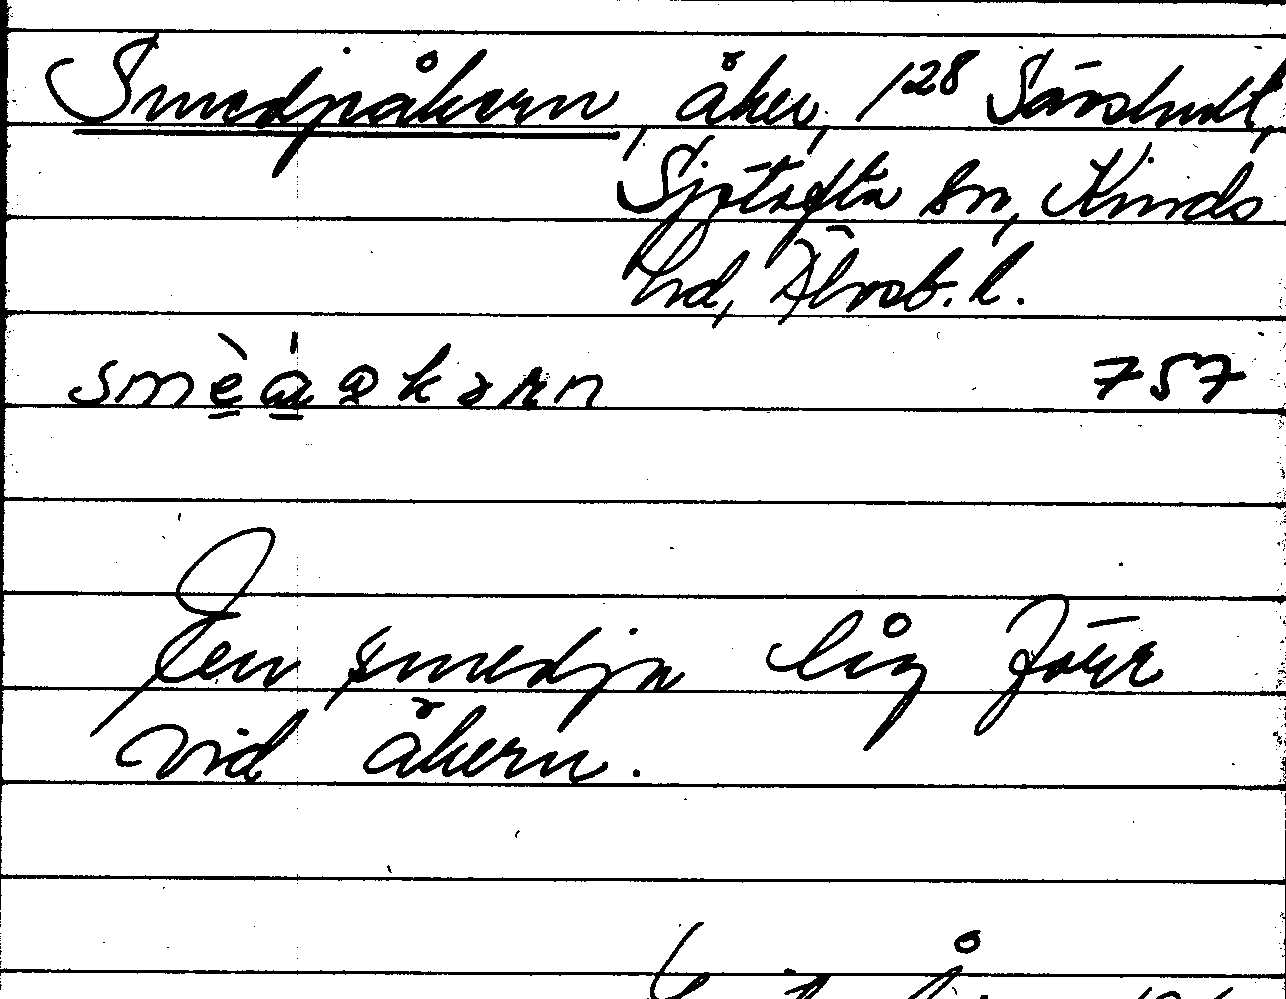 Smedjeåkern, åker, 128 Särshult,
Sjötofta sn, Kinds
hd, Älvsb. l.
757
En smedja låg förr
vid åkern.